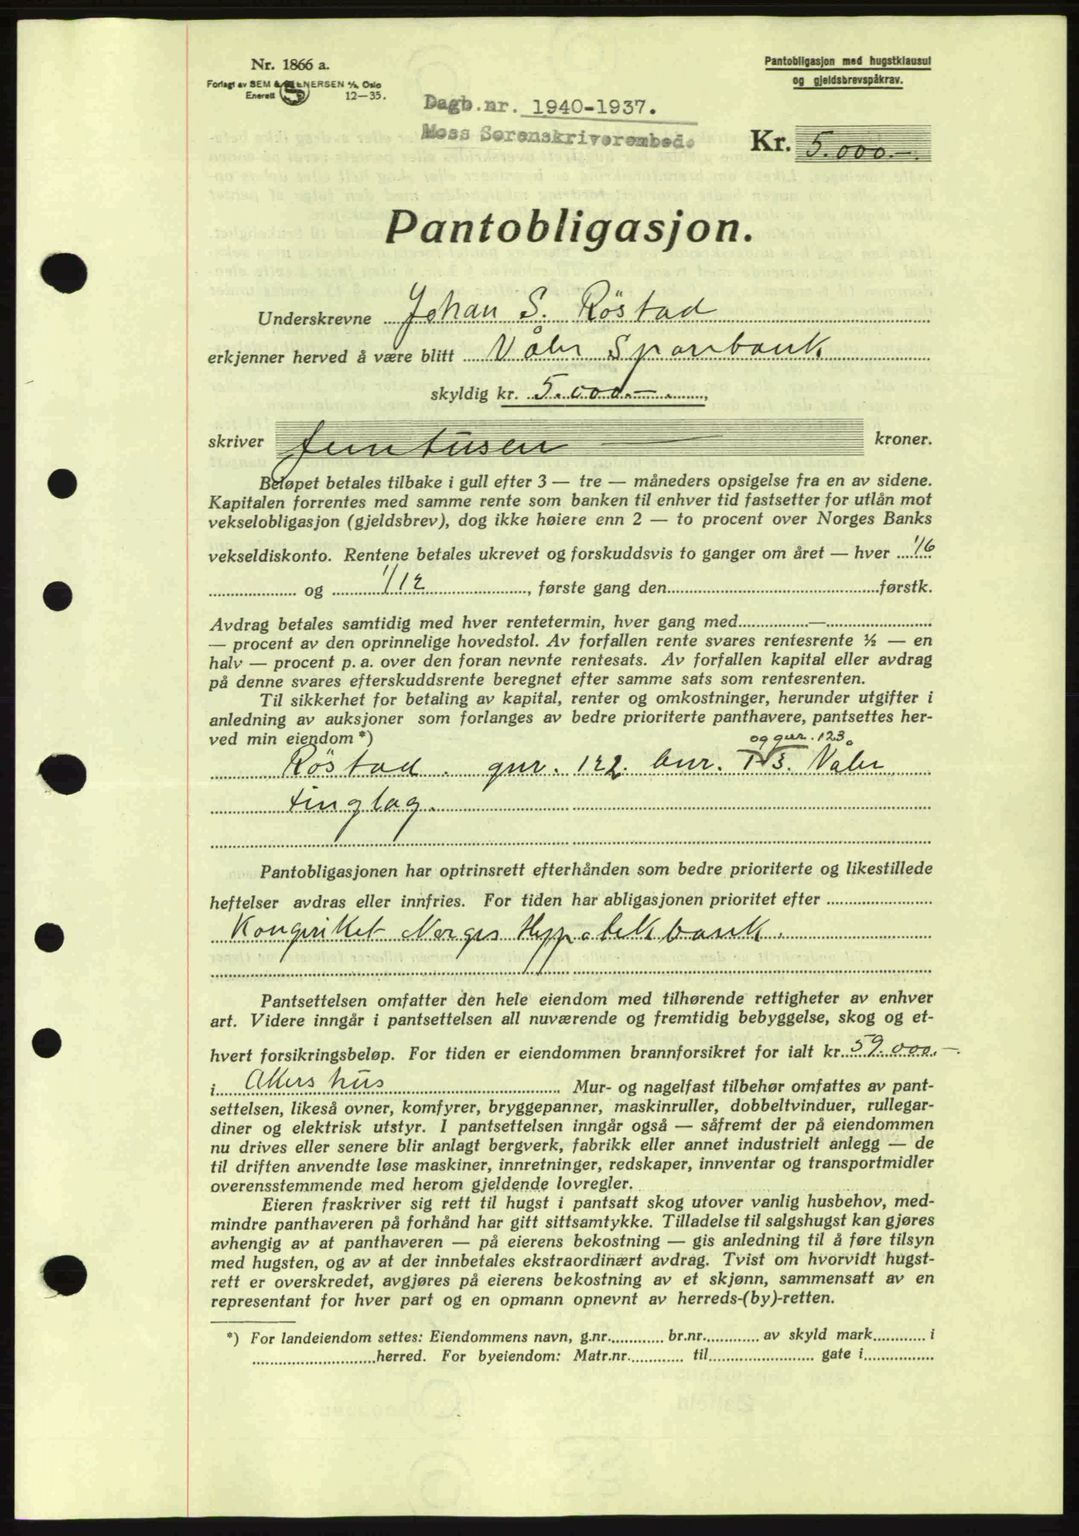 Nr. 1866 a.
Forlagt av SEM & STENERSEN A/S, Oslo
Enerett 12—35.
Pantobligasjon med hugstklausul
og gjeldsbrevspåkrav.
Dagb.nr. 1940-1937.
Moss Sorenskriverembede
Kr. 5.000.—.
Pantobligasjon.
Underskrevne Johan S. Röstad
erkjenner herved å være blitt Våler Sparebank
skyldig kr. 5.000.—.,
skriver femtusen — kroner.
Beløpet betales tilbake i gull efter 3 — tre — måneders opsigelse fra en av sidene.
Kapitalen forrentes med samme rente som banken til enhver tid fastsetter for utlån mot
vekselobligasjon (gjeldsbrev), dog ikke høiere enn 2 — to procent over Norges Banks
vekseldiskonto. Rentene betales ukrevet og forskuddsvis to ganger om året — hver 1/6
og 1/12, første gang den førstk.
Avdrag betales samtidig med hver rentetermin, hver gang med —
— procent av den oprinnelige hovedstol. Av forfallen rente svares rentesrente ½ — en
halv — procent p. a. over den foran nevnte rentesats. Av forfallen kapital eller avdrag
på denne svares efterskuddsrente beregnet efter samme sats som rentesrenten.
Til sikkerhet for betaling av kapital, renter og omkostninger, herunder utgifter i
anledning av auksjoner som forlanges av bedre prioriterte panthavere, pantsettes her-
ved min eiendom *) og gnr. 123.
Röstad. gnr. 122. bnr. 1 V 3. Våler
tinglag.
Pantobligasjonen har optrinsrett efterhånden som bedre prioriterte og likestillede
heftelser avdras eller innfries. For tiden har abligasjonen prioritet efter
Kongeriket Norges Hypotekbank.
Pantsettelsen omfatter den hele eiendom med tilhørende rettigheter av enhver
art. Videre inngår i pantsettelsen all nuværende og fremtidig bebyggelse, skog og et-
hvert forsikringsbeløp. For tiden er eiendommen brannforsikret for ialt kr. 59.000.—.
i Akershus Mur- og nagelfast tilbehør omfattes av pant-
settelsen, likeså ovner, komfyrer, bryggepanner, maskinruller, dobbeltvinduer, rullegar-
diner og elektrisk utstyr. I pantsettelsen inngår også — såfremt der på eiendommen
nu drives eller senere blir anlagt bergverk, fabrikk eller annet industrielt anlegg — de
til driften anvendte løse maskiner, innretninger, redskaper, innventar og transportmidler
overensstemmende med herom gjeldende lovregler.
Eieren fraskriver sig rett til hugst i pantsatt skog utover vanlig husbehov, med-
mindre panthaveren på forhånd har gitt sittsamtykke. Tilladelse til salgshugst kan gjøres
avhengig av at panthaveren — på eierens bekostning — gis anledning til å føre tilsyn
med hugsten, og av at der innbetales ekstraordinært avdrag. Tvist om hvorvidt hugst-
rett er overskredet, avgjøres på eierens bekostning av et skjønn, sammensatt av en
representant for hver part og en opmann opnevnt av herreds-(by)-retten.
*) For landeiendom settes: Eiendommens navn, g.nr. br.nr. av skyld mark i
herred. For byeiendom: Matr.nr. til gate i